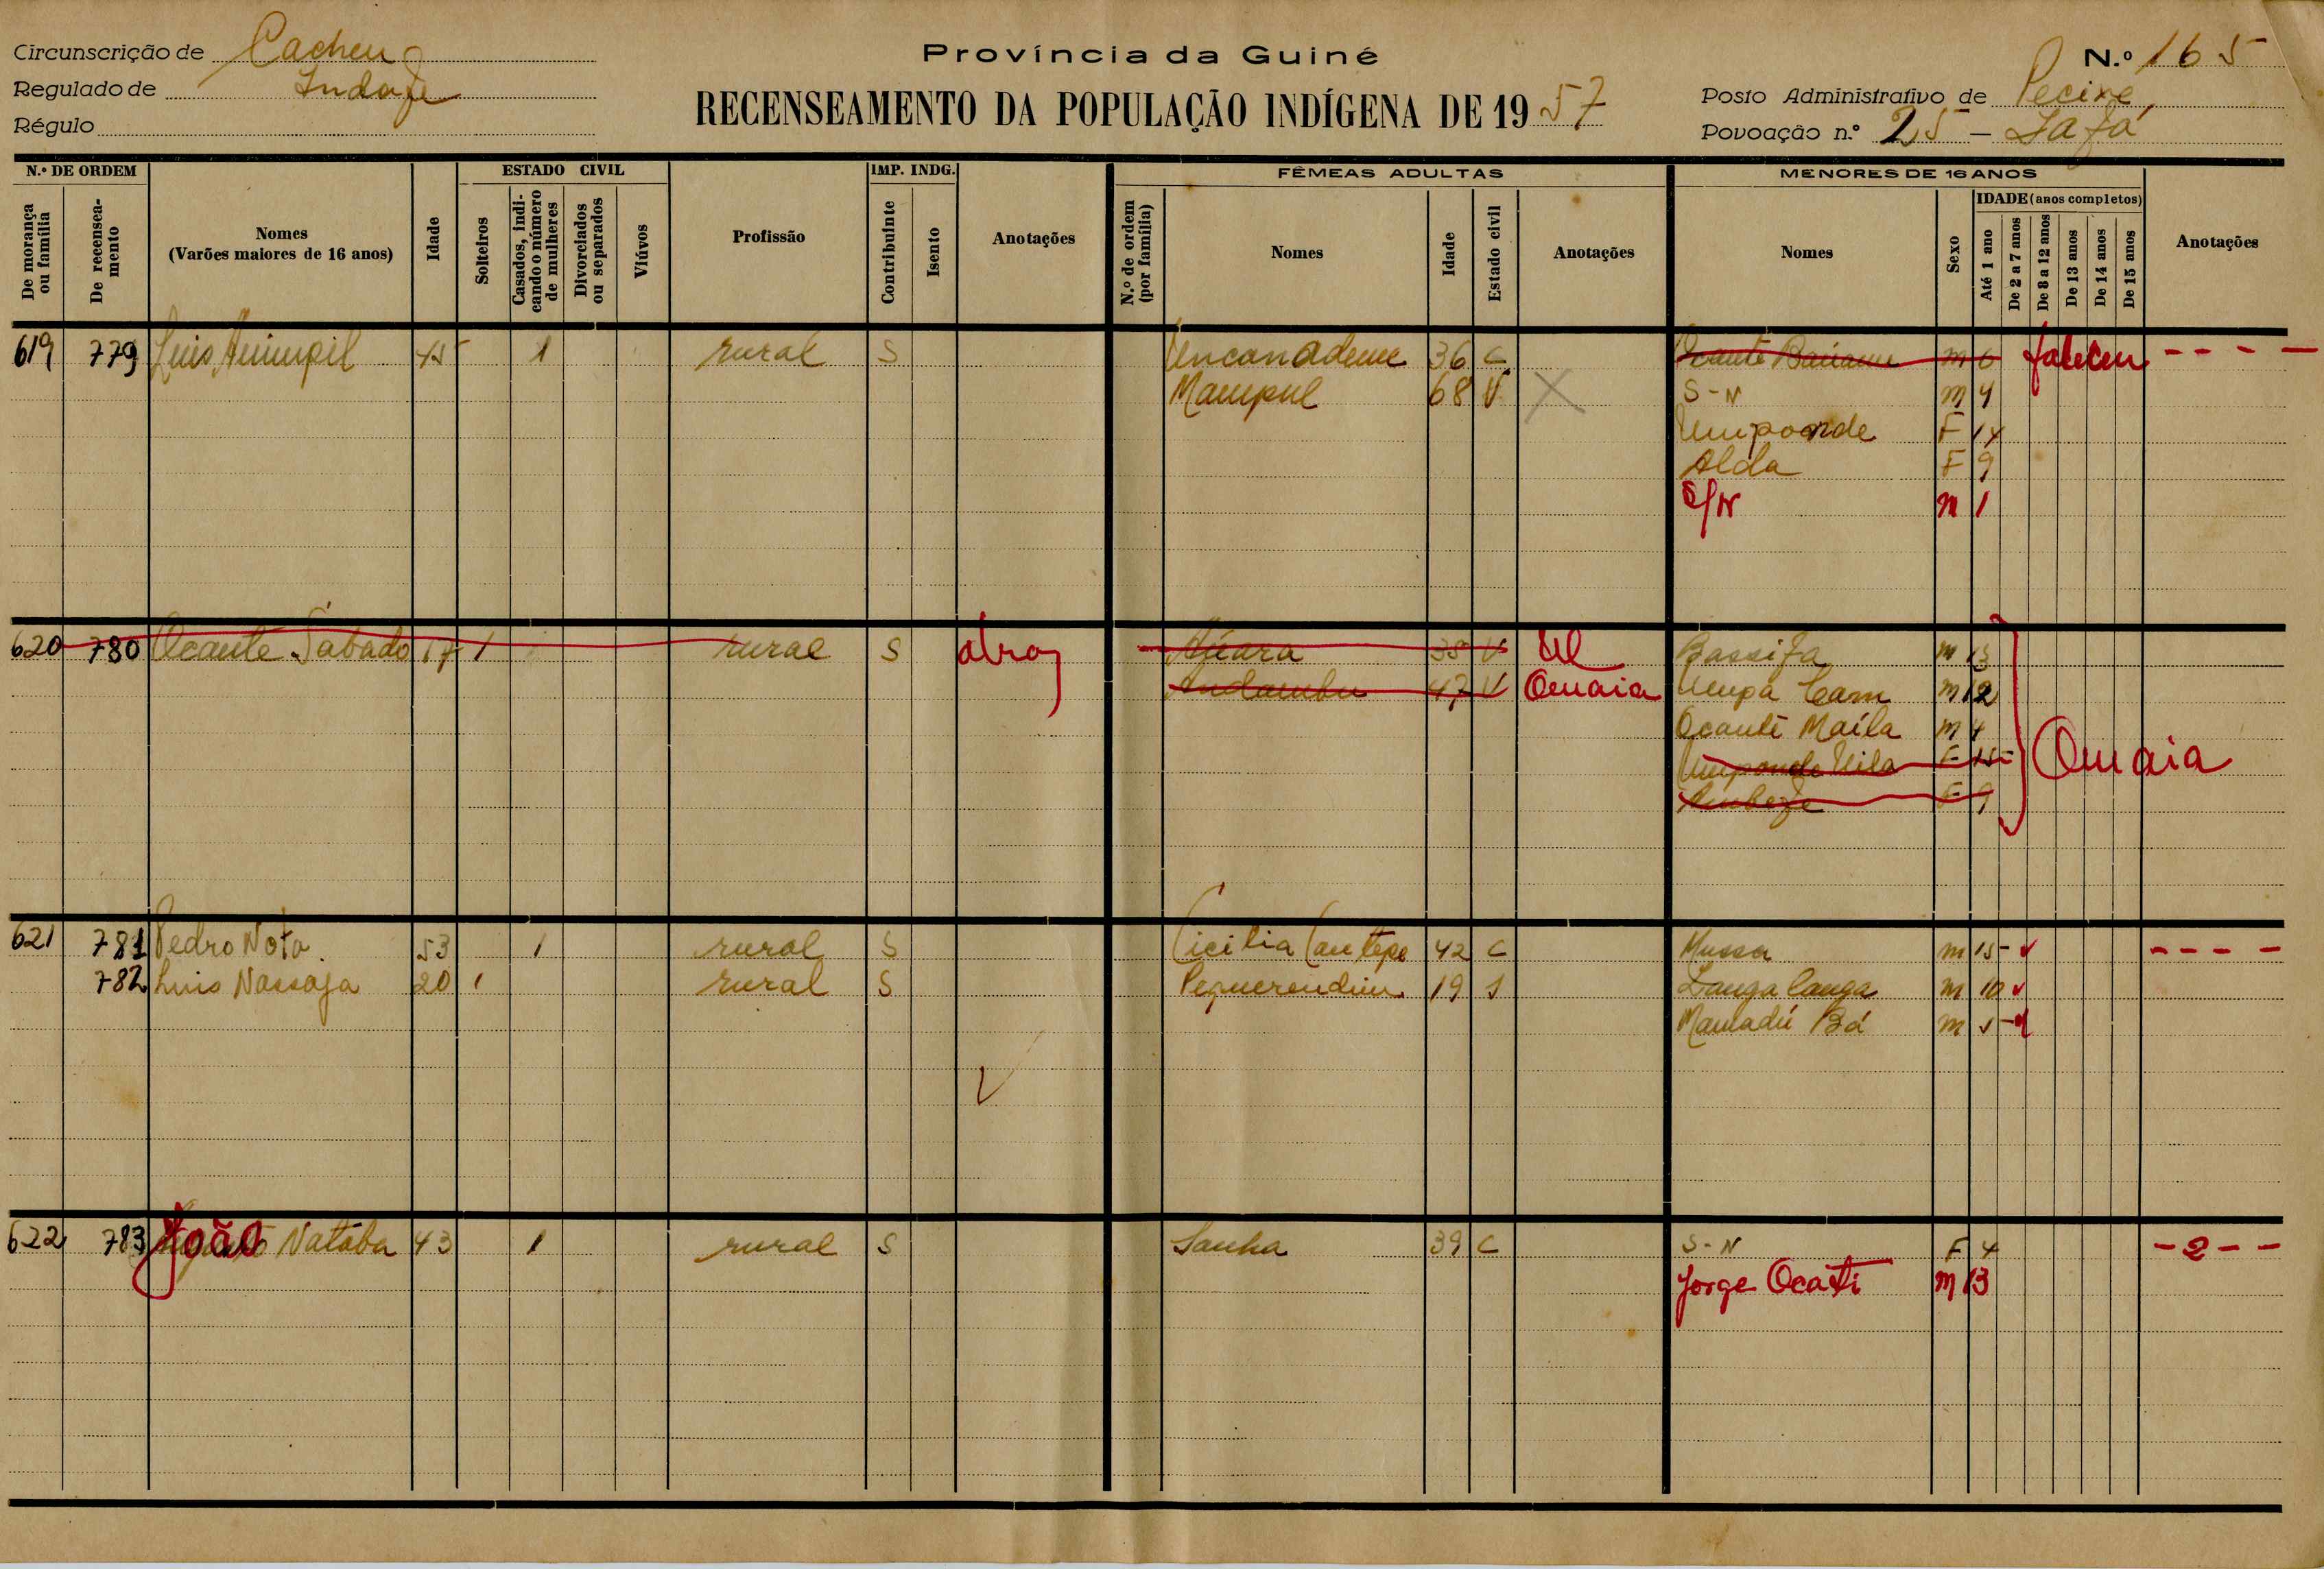 Circunscrição de Cacheu
Regulado de
Régulo
Província da Guiné
RECENSEAMENTO DA POPULAÇÃO INDÍGENA DE 1957
N.º 165
Posto Administrativo de Pecixe
Povoação n.º 25 –
N.º DE ORDEM
De morança ou família
De recenseamento
Nomes
(Varões maiores de 16 anos)
Idade
ESTADO CIVIL
Solteiros
Casados, indicando o número de mulheres
Divorciados ou separados
Viúvos
Profissão
IMP. INDG.
Contribuinte
Isento
Anotações
FÊMEAS ADULTAS
N.º de ordem (por família)
Nomes
Idade
Estado civil
Anotações
MENORES DE 16 ANOS
Nomes
Sexo
IDADE (anos completos)
Até 1 ano
De 2 a 7 anos
De 8 a 12 anos
De 13 anos
De 14 anos
De 15 anos
Anotações
619 779 Luis 45 1 rural S 36 C m 6 faleceu - - - -
68 V X S-N m 4
F 14
Alda F 9
S/N m 1
620 780 Ocante Sabado 17 1 rural S V m 13
47 V Omaia m 12
Ocante Maila m 4
F 15 Omaia
F 9
621 781 Pedro Nota 53 1 rural S Cicilia 42 C Mussa m 15 - - - -
782 Luis Nassaja 20 1 rural S 19 S m 10
Mamadú Bá m 5
622 783 João Nataba 43 1 rural S Sanha 39 C S-N F 4 - 2 - -
Jorge Ocati m 13